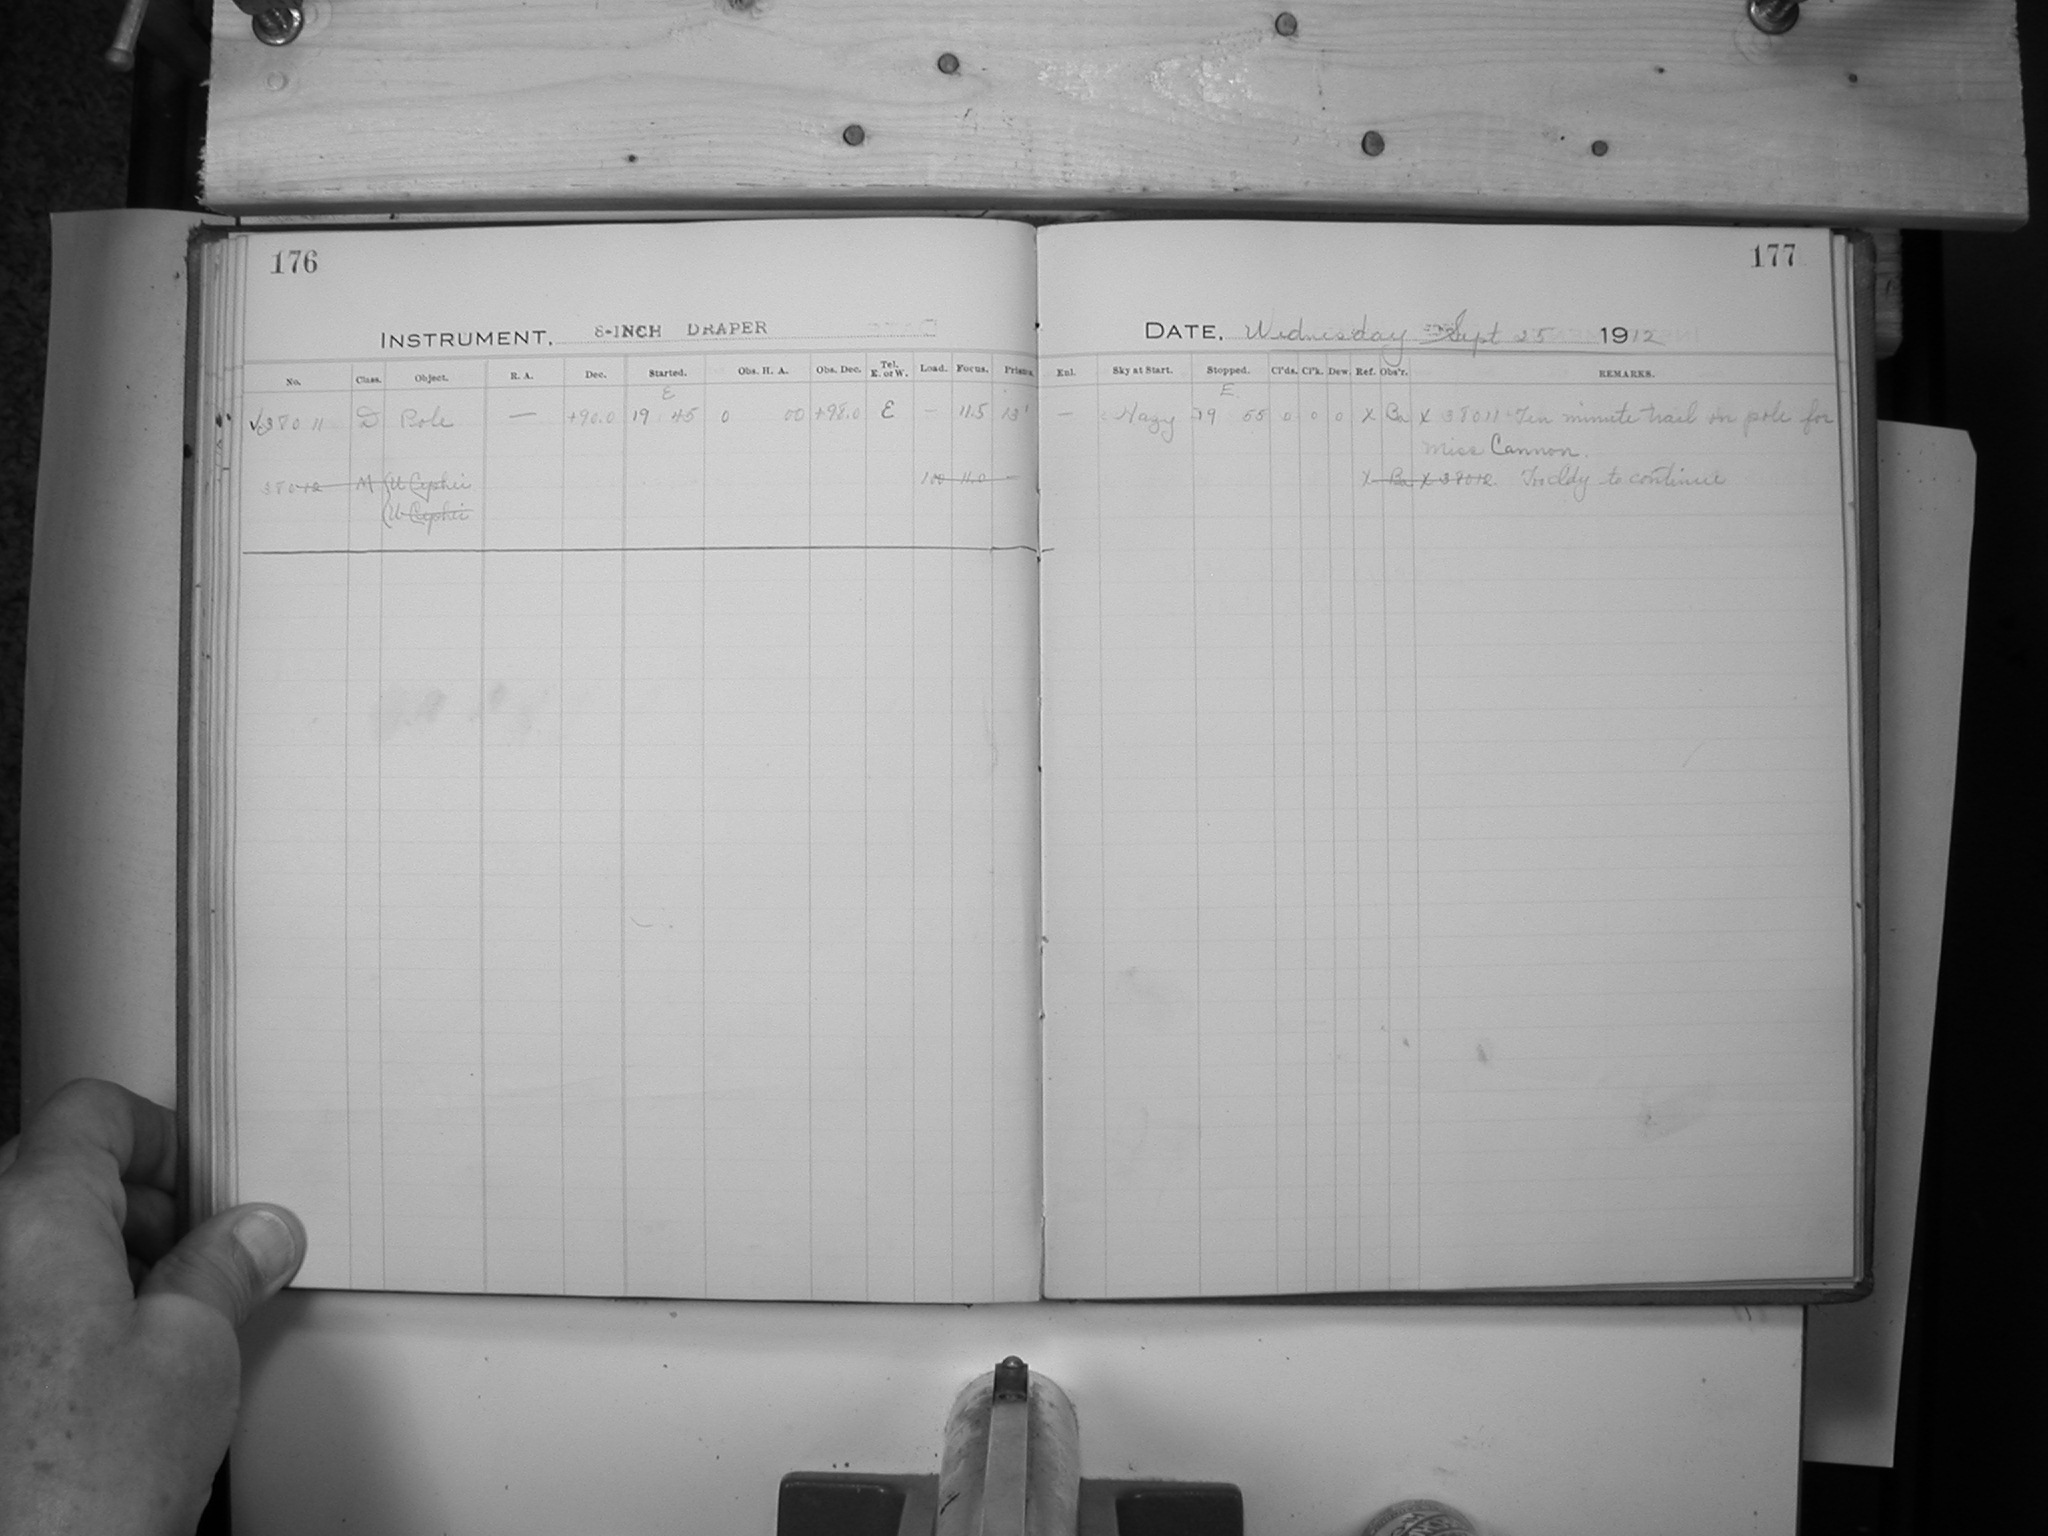 176
177
INSTRUMENT, 8-INCH DRAPER
DATE, Wednesday Sept 25 1912
No. Class. Object. R. A. Dec. Started. Obs. H. A. Obs. Dec. Tel. E. or W. Load. Focus. Prisms. Enl. Sky at Start. Stopped. Cl'ds. Cl'k. Dew. Ref. Obs'r. REMARKS.
E E
38011 D Pole — +90.0 19 45 0 00 +98.0 E — 11.5 13' — Hazy 19 55 0 0 0 X Ba X 38011 Ten minute trail on pole for
Miss Cannon.
38012 M U Cephei 100 11.0 — X Ba X 38012. to continue
U Cephei